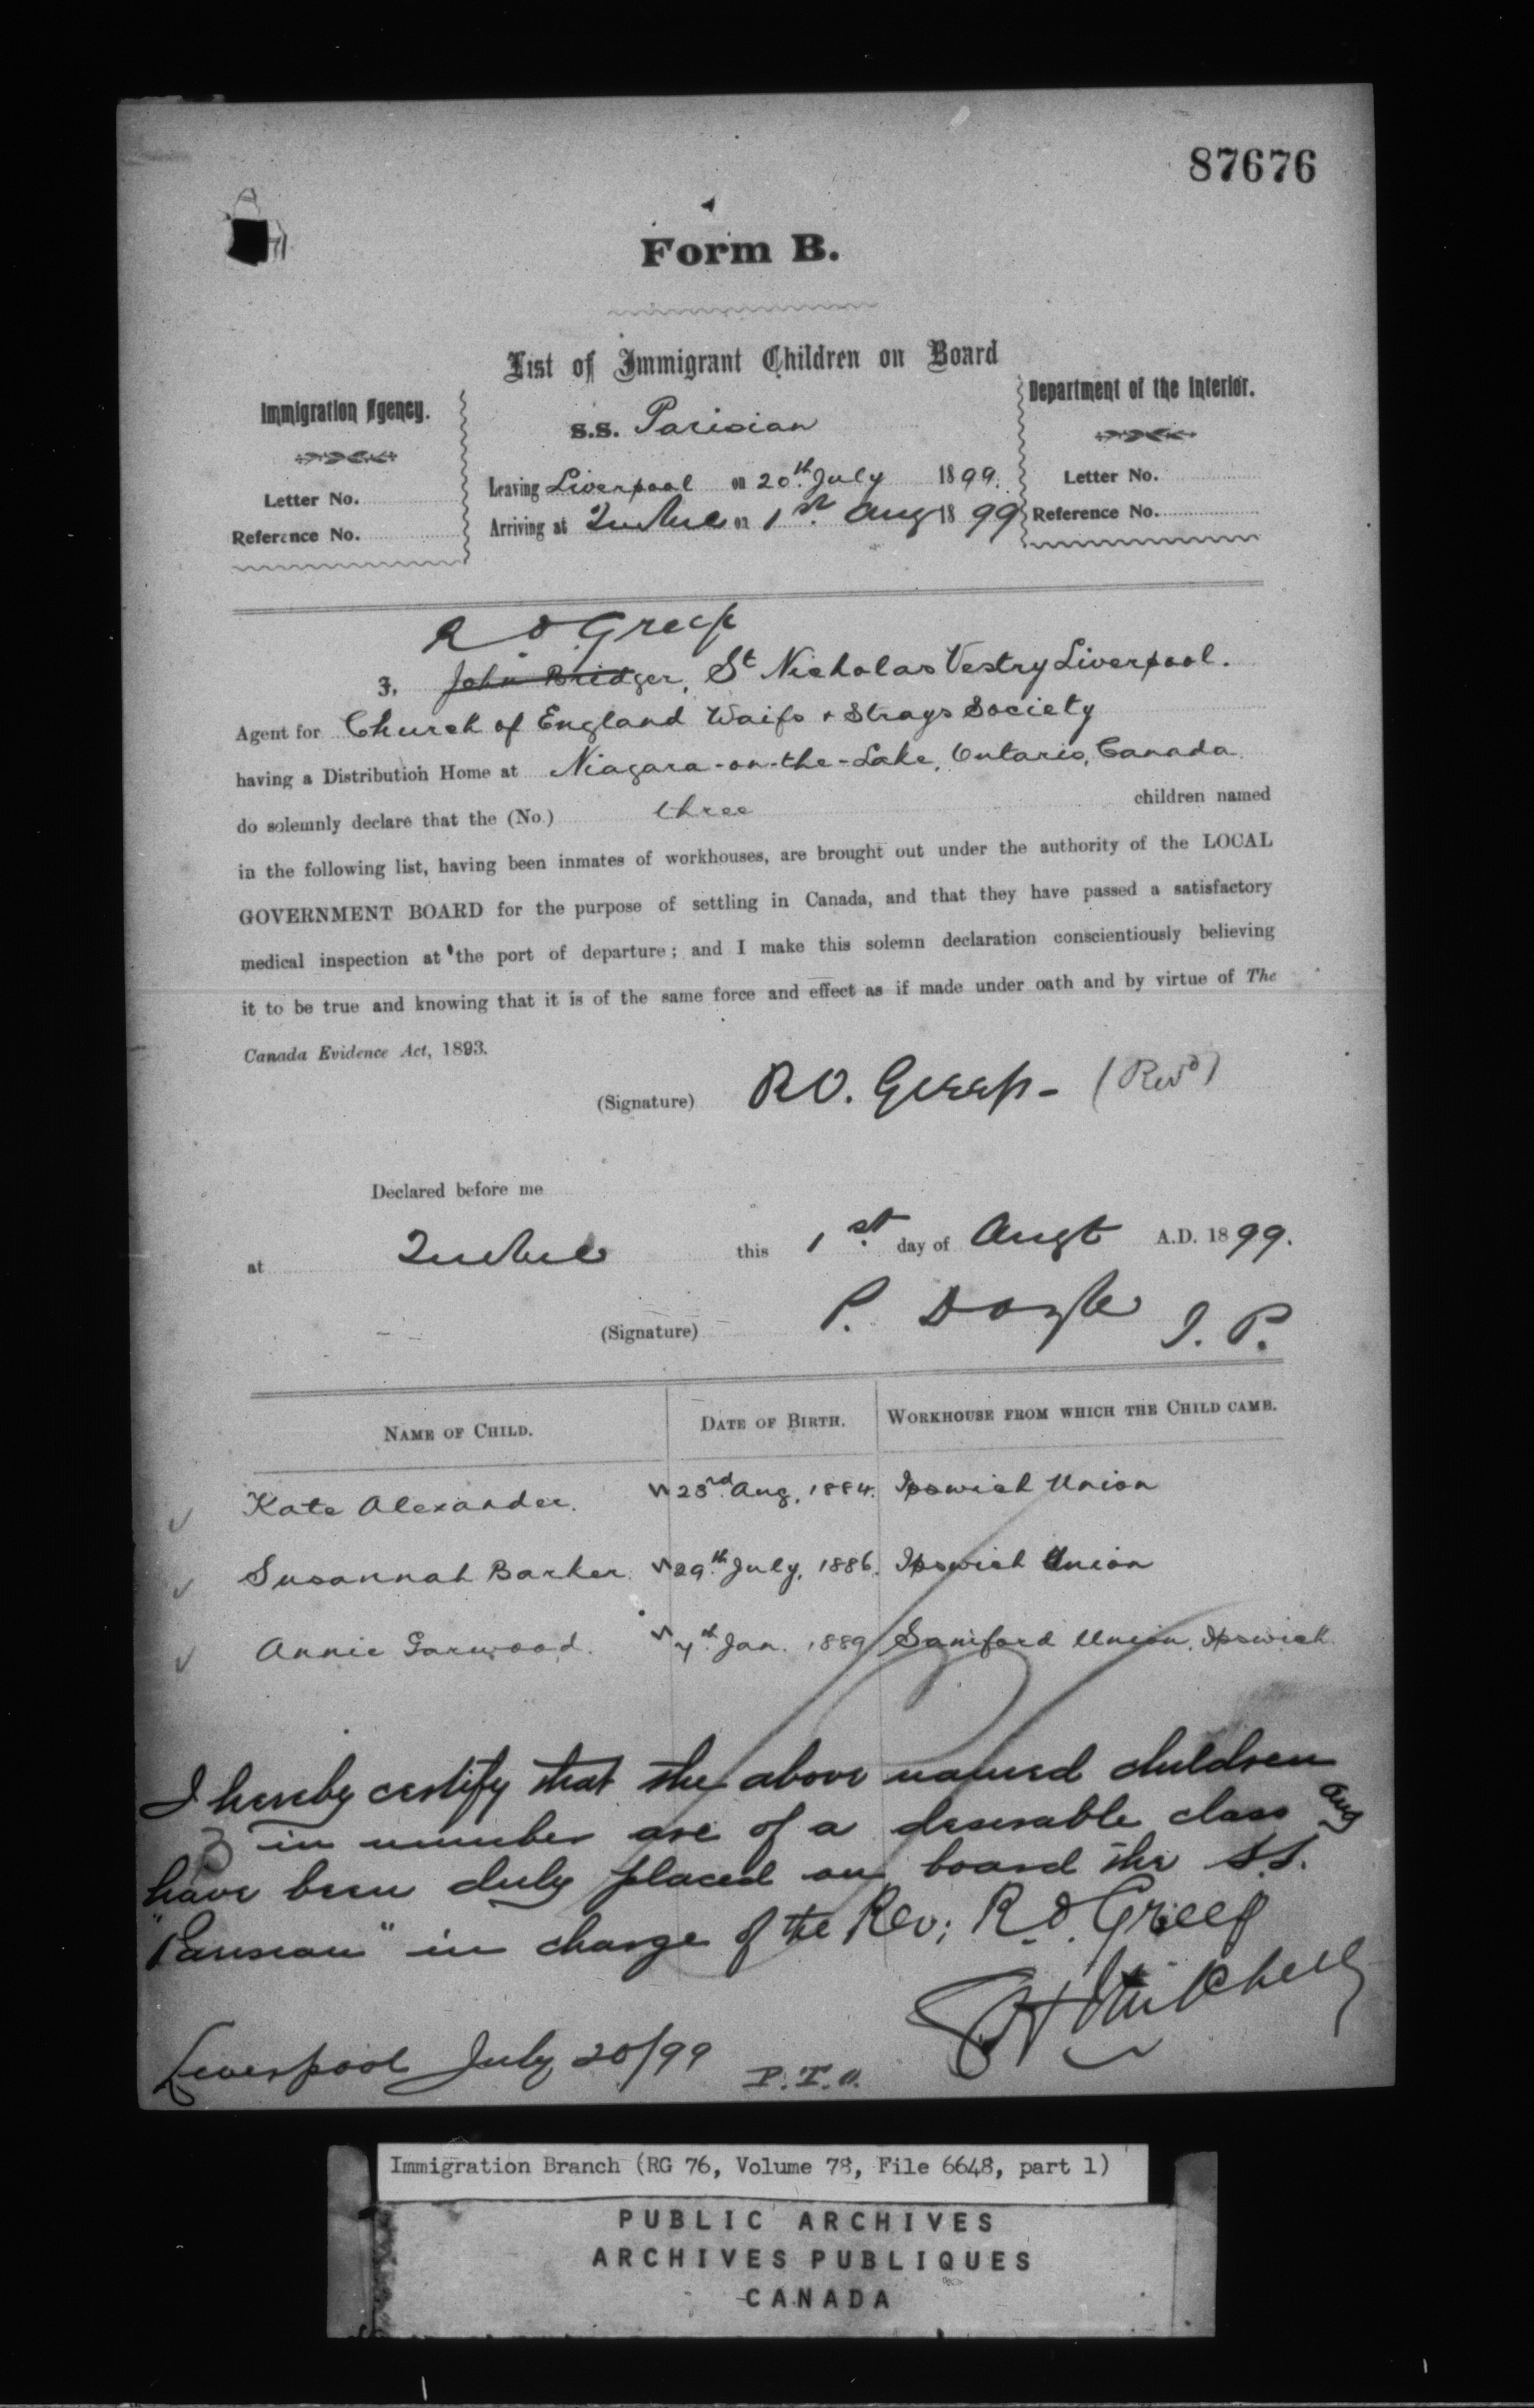 87676
Form B.
List of Immigrant Children on Board
Immigration Agency.
Letter No.
Reference No.
s.s. Parisian
Leaving Liverpool on 20th July 1899.
Arriving at Quebec on 1st Aug 1899
Department of the Interior.
Letter No.
Reference No.
R O Greep
I, John Bridger, St Nicholas Vestry Liverpool.
Agent for Church of England Waifs & Strays Society
having a Distribution Home at Niagara-on-the-Lake, Ontario, Canada
do solemnly declare that the (No.) three children named
in the following list, having been inmates of workhouses, are brought out under the authority of the LOCAL
GOVERNMENT BOARD for the purpose of settling in Canada, and that they have passed a satisfactory
medical inspection at the port of departure; and I make this solemn declaration conscientiously believing
it to be true and knowing that it is of the same force and effect as if made under oath and by virtue of The
Canada Evidence Act, 1893.
(Signature) R O. Greep - (Revd)
Declared before me
at Quebec this 1st. day of Augt A.D. 1899.
(Signature) P. Doyle J. P.
NAME OF CHILD. DATE OF BIRTH. WORKHOUSE FROM WHICH THE CHILD CAME.
Kate Alexander. 23rd Aug, 1884. Ipswich Union
Susannah Barker. 29th July, 1886. Ipswich Union
Annie Garwood. 7th Jan. 1889 Samford Union, Ipswich
I hereby certify that the above named children
3 in number are of a desirable class and
have been duly placed on board the S.S.
"Parisian" in charge of the Rev; R. O. Greep
Mitchell
Liverpool July 20/99 P.T.O.
Immigration Branch (RG 76, Volume 78, File 6648, part 1)
PUBLIC ARCHIVES
ARCHIVES PUBLIQUES
CANADA